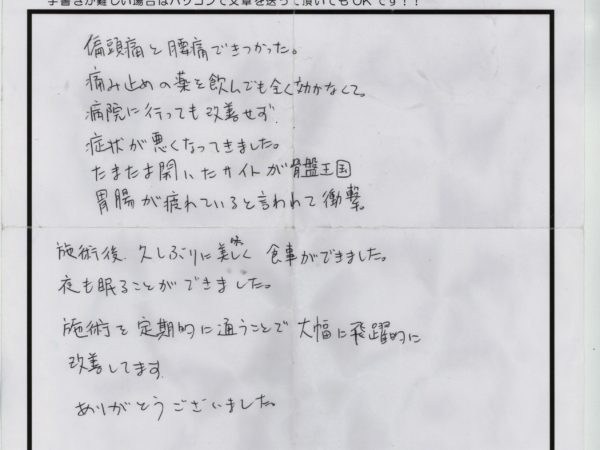 手書きが難しい場合はパソコンで文章を送って頂いてもOKです!!
偏頭痛と腰痛できつかった。
痛み止めの薬を飲んでも全く効かなくて。
病院に行っても改善せず、
症状が悪くなってきました。
たまたま開いたサイトが骨盤王国
胃腸が疲れていると言われて衝撃。
施術後、久しぶりに美味しく 食事ができました。
夜も眠ることができました。
施術を定期的に通うことで 大幅に飛躍的に
改善してます。
ありがとうございました。